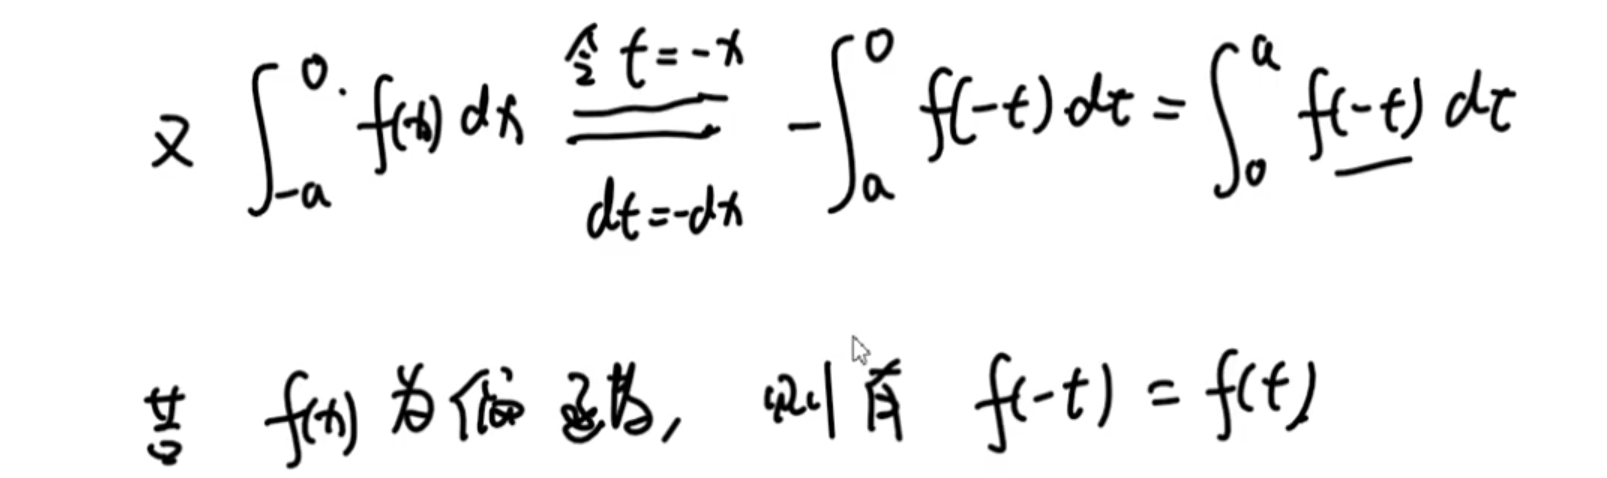 又 ∫_{-a}^{0} f(x) dx \xlongequal[dt=-dx]{令 t=-x} -∫_{a}^{0} f(-t) dt = ∫_{0}^{a} f(-t) dt
若 f(x) 为偶函数, 则有 f(-t) = f(t)